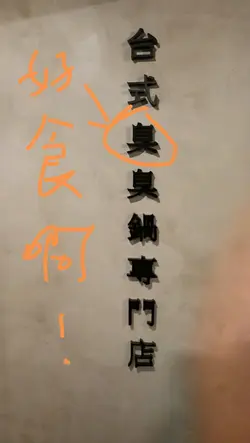 台式臭臭鍋專門店
好食啊！